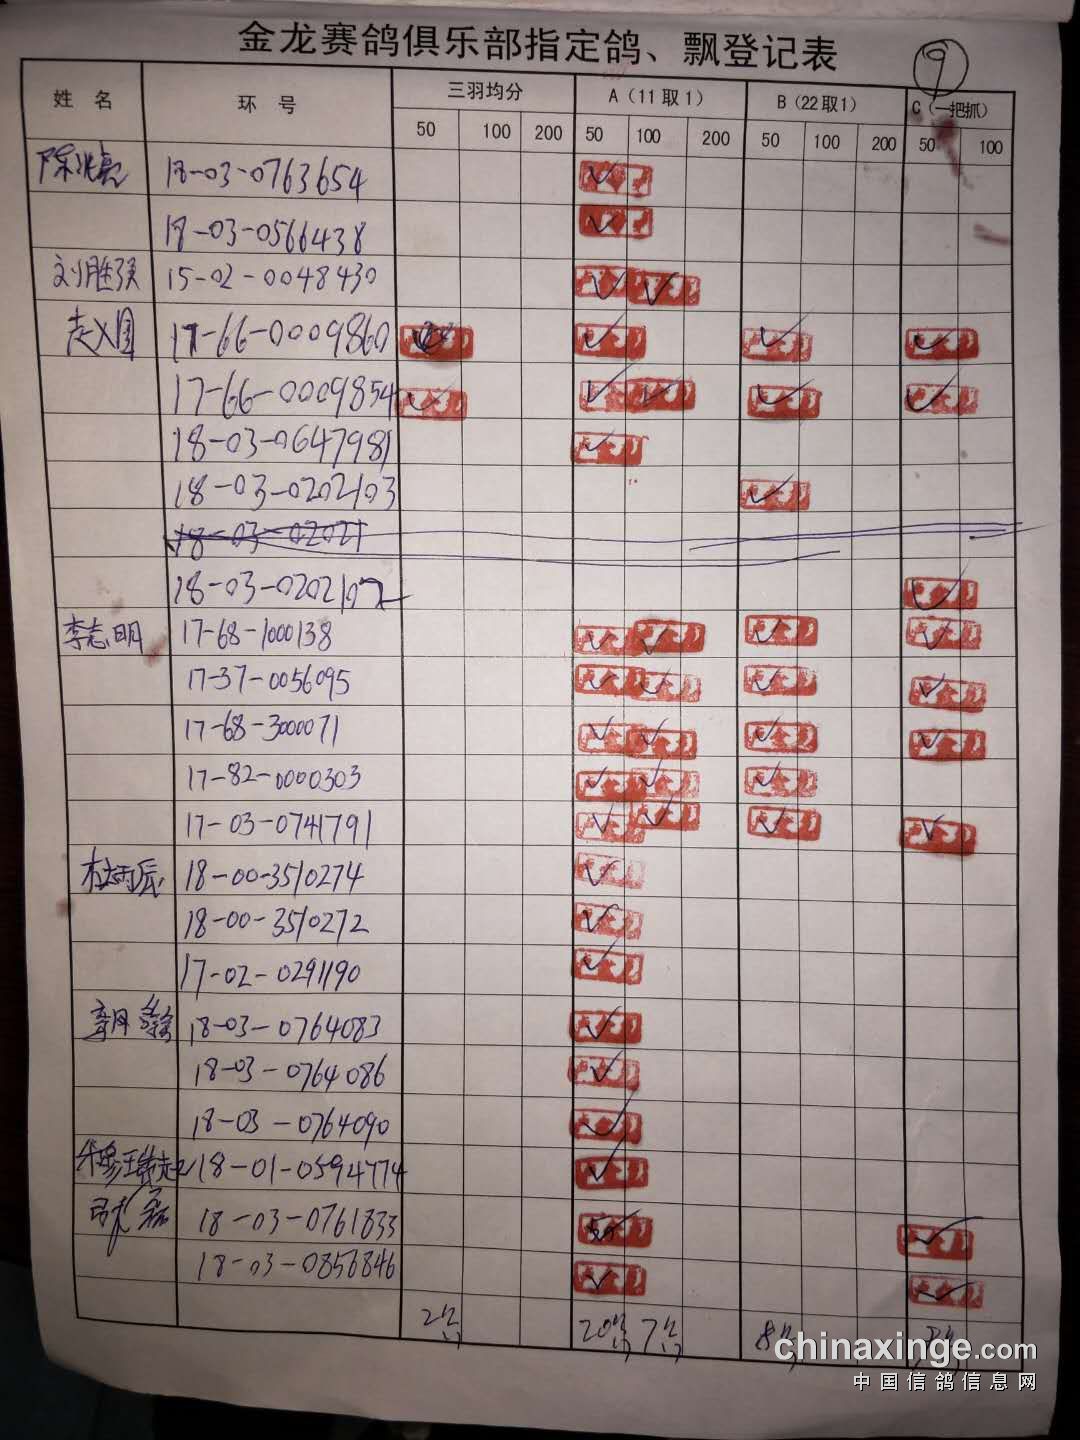 金龙赛鸽俱乐部指定鸽、飘登记表
9
姓 名 环 号 三羽均分 A（11取1） B（22取1） C（一把抓）
50 100 200 50 100 200 50 100 200 50 100
陈兆亮 18-03-0763654
18-03-0566438
刘胜强 15-02-0048430
17-66-0009860
17-66-0009854
18-03-0647981
18-03-0202103
18-03-02021
18-03-0202102
李志明 17-68-1000138
17-37-0056095
17-68-3000071
17-82-0000303
17-03-0741791
18-00-3510274
18-00-3510272
17-02-0291190
18-03-0764083
18-03-0764086
18-03-0764090
18-01-0594774
18-03-0761833
18-03-0856846
chinaxinge.com
中国信鸽信息网